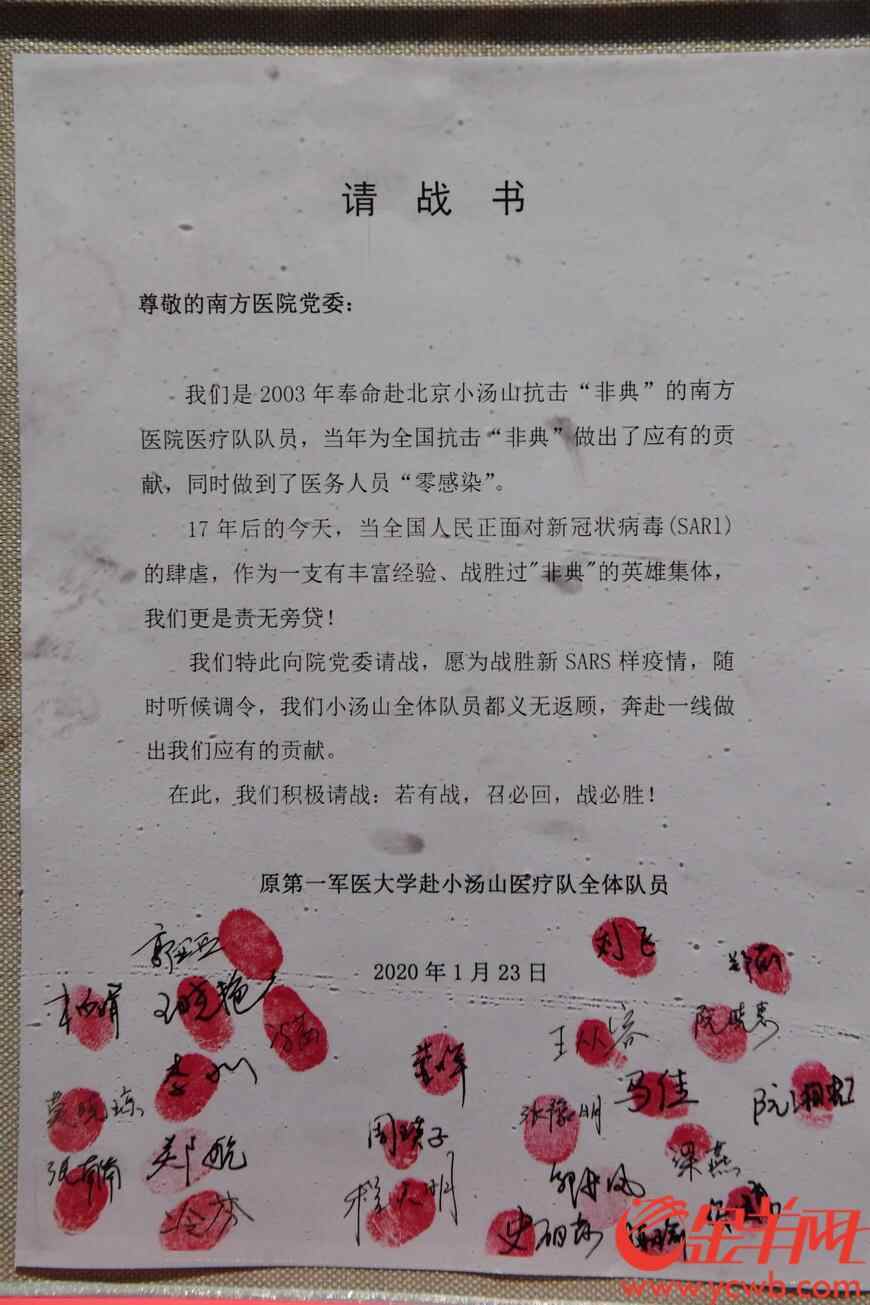 请战书
尊敬的南方医院党委：
我们是2003年奉命赴北京小汤山抗击“非典”的南方
医院医疗队队员，当年为全国抗击“非典”做出了应有的贡
献，同时做到了医务人员“零感染”。
17年后的今天，当全国人民正面对新冠状病毒(SARI)
的肆虐，作为一支有丰富经验、战胜过"非典"的英雄集体，
我们更是责无旁贷！
我们特此向院党委请战，愿为战胜新SARS样疫情，随
时听候调令，我们小汤山全体队员都义无返顾，奔赴一线做
出我们应有的贡献。
在此，我们积极请战：若有战，召必回，战必胜！
原第一军医大学赴小汤山医疗队全体队员
2020年1月23日
刘飞
王晓艳
王从容
阮晓惠
马佳
张豫明
莫晓琼
周瑛子
郑航
梁燕
张莉南
程人明
金羊网
www.ycwb.com